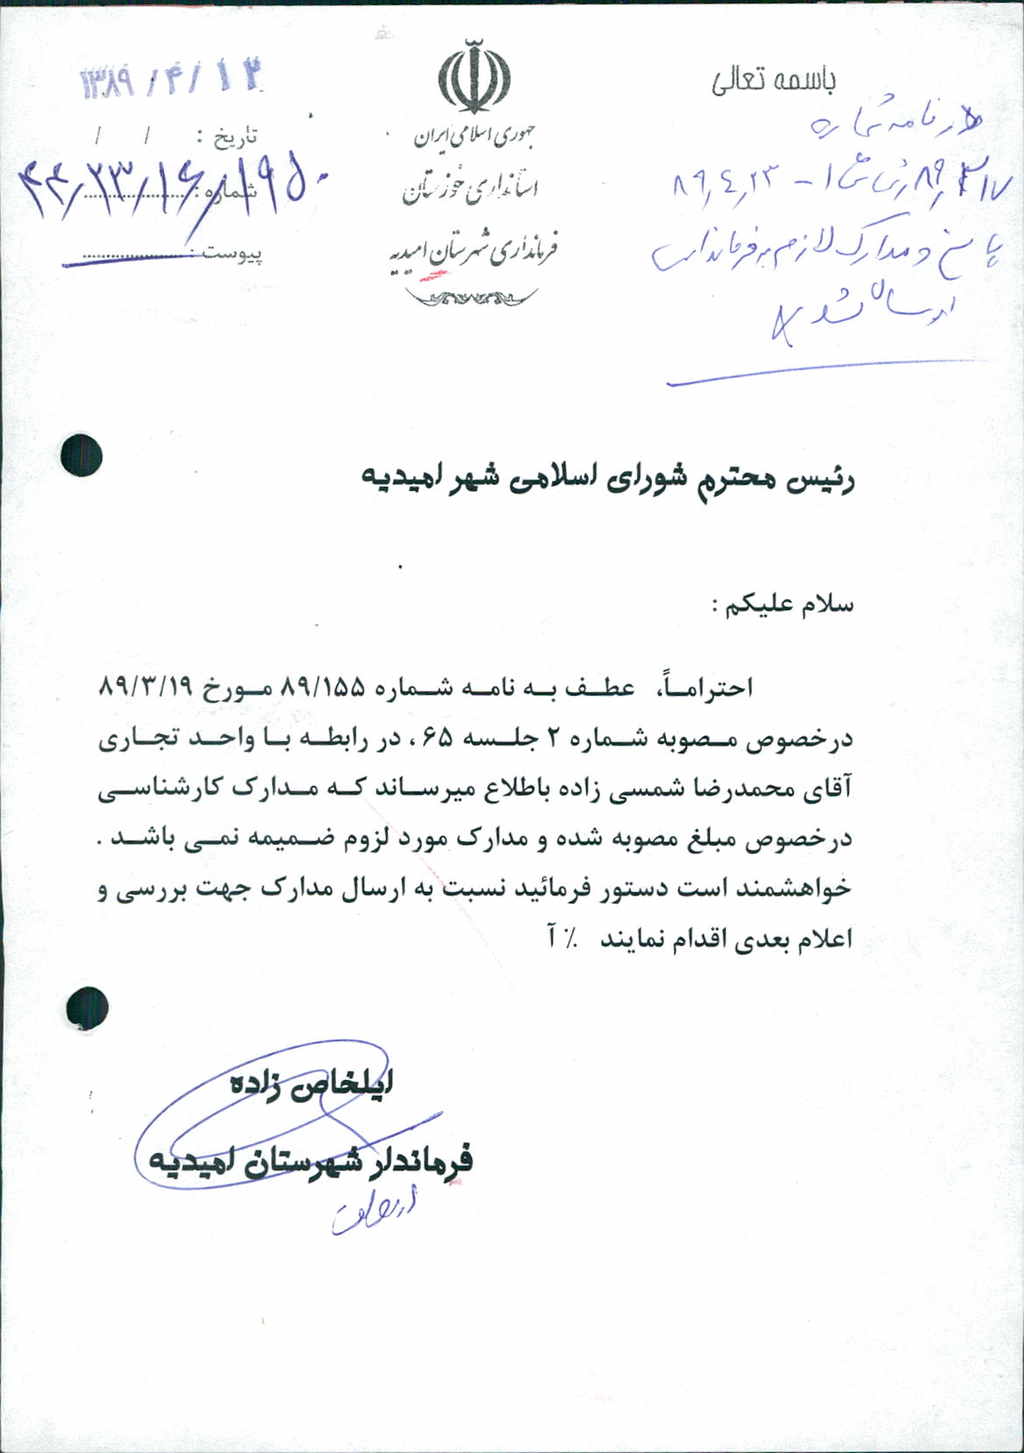 باسمه تعالی
جمهوری اسلامی ایران
استانداری خوزستان
فرمانداری شهرستان امیدیه
۱۳۸۹/۴/۱۲
تاریخ : / /
شماره : ۴۴/۲۳/۱۶/۱۹۵۰
پیوست :
در نامه شماره
پاسخ و مدارک لازم به فرمانداری
ارسال شد
رئیس محترم شورای اسلامی شهر امیدیه
سلام علیکم :
احتراماً، عطف به نامه شماره ۸۹/۱۵۵ مورخ ۸۹/۳/۱۹
درخصوص مصوبه شماره ۲ جلسه ۶۵ ، در رابطه با واحد تجاری
آقای محمدرضا شمسی زاده باطلاع میرساند که مدارک کارشناسی
درخصوص مبلغ مصوبه شده و مدارک مورد لزوم ضمیمه نمی باشد .
خواهشمند است دستور فرمائید نسبت به ارسال مدارک جهت بررسی و
اعلام بعدی اقدام نمایند ٪ آ
ایلخاص زاده
فرماندار شهرستان امیدیه